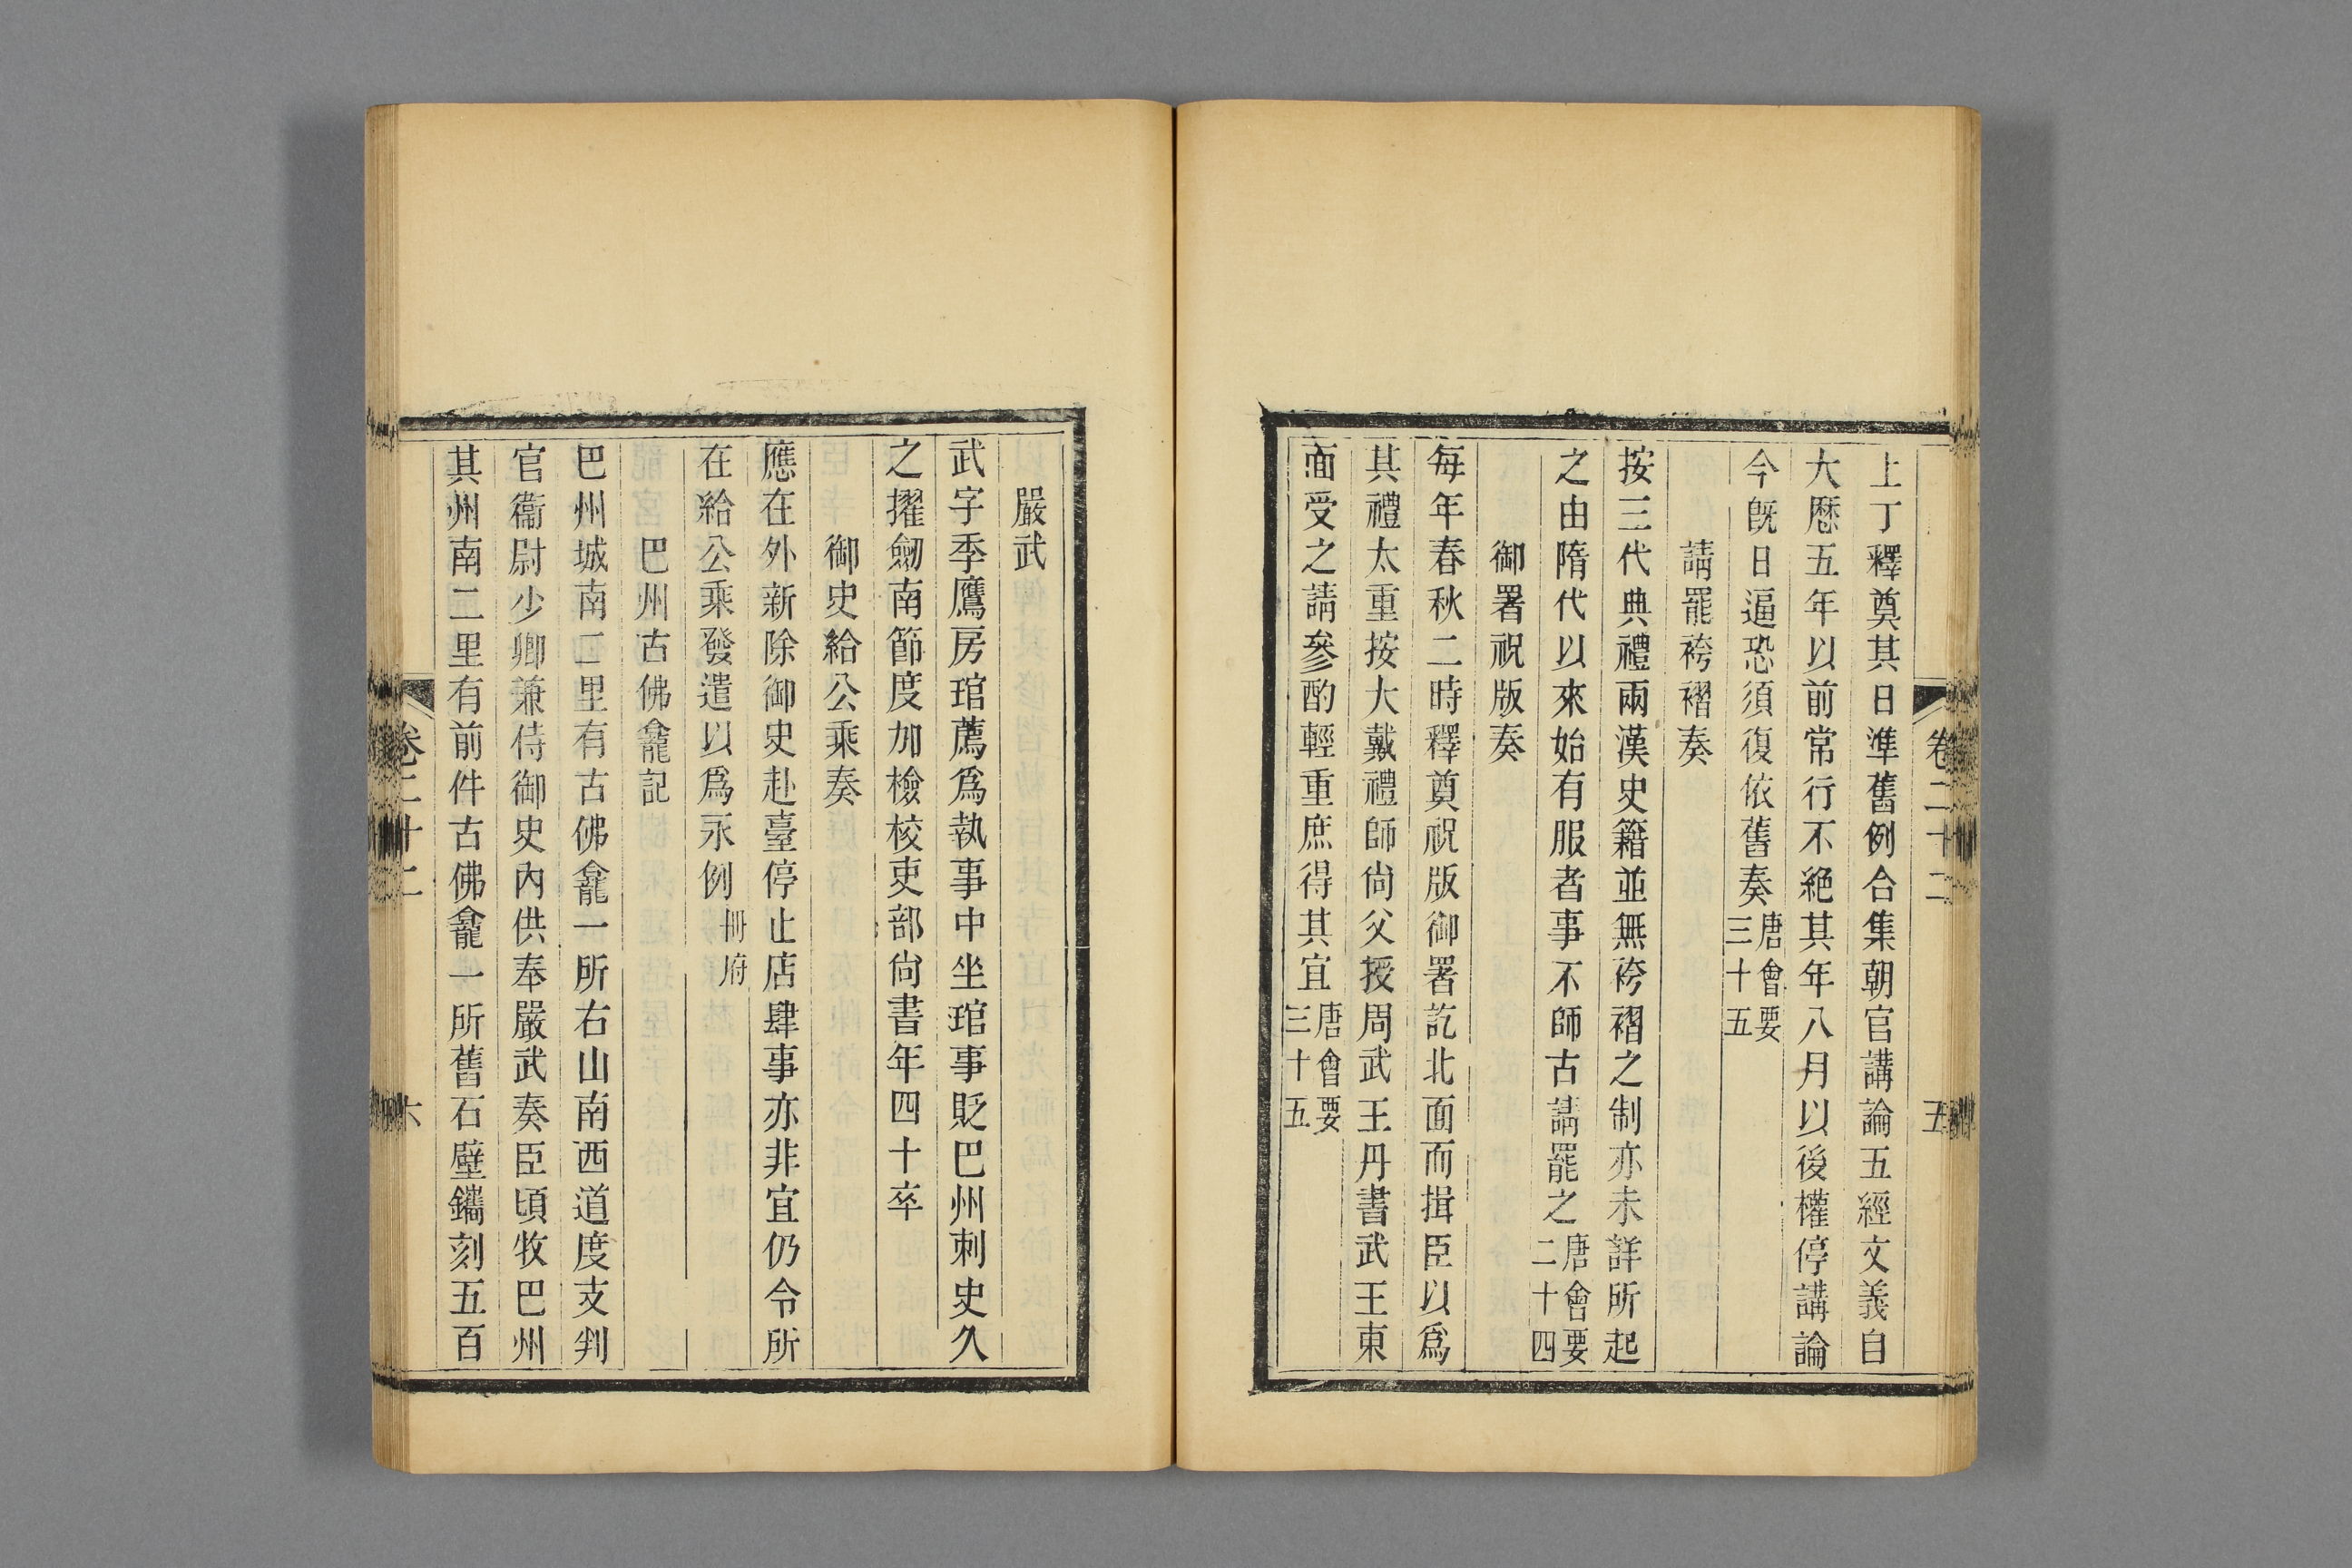 卷二十二
五
上丁釋奠其日準舊例合集朝官講論五經文義自
大厯五年以前常行不絕其年八月以後權停講論
今旣日逼恐須復依舊奏唐會要三十五
請罷袴褶奏
按三代典禮兩漢史籍並無袴褶之制亦未詳所起
之由隋代以來始有服者事不師古請罷之唐會要二十四
御署祝版奏
每年春秋二時釋奠祝版御署訖北面而揖臣以爲
其禮太重按大戴禮師尙父授周武王丹書武王東
面受之請參酌輕重庶得其宜唐會要三十五
嚴武
武字季鷹房琯薦爲執事中坐琯事貶巴州刺史久
之擢劒南節度加檢校吏部尙書年四十卒
御史給公乘奏
應在外新除御史赴臺停止店肆事亦非宜仍令所
在給公乘發遣以爲永例冊府
巴州古佛龕記
巴州城南二里有古佛龕一所右山南西道度支判
官衞尉少卿兼侍御史內供奉嚴武奏臣頃牧巴州
其州南二里有前件古佛龕一所舊石壁鐫刻五百
卷二十二
六